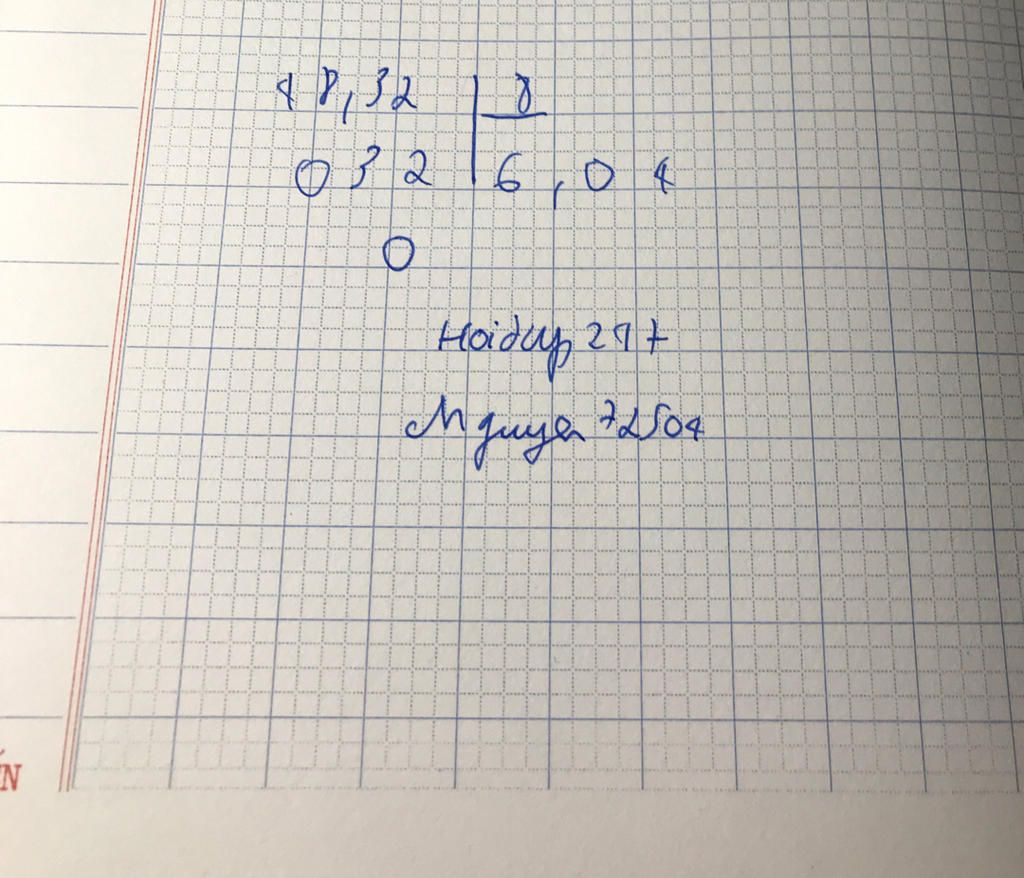 48,32 8
032 6,04
0
Hoidap 247
Nguyen 72504